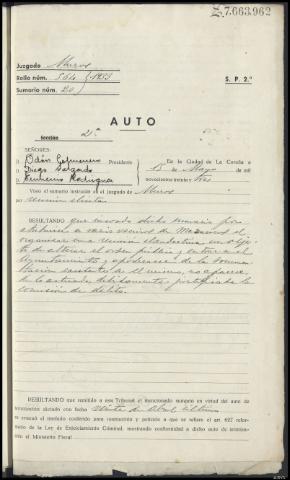 Z.7.663.962
Juzgado Muros
Rollo núm. 564 / 1933
Sumario núm. 20 /
S. P. 2.º
AUTO
Sección 2ª
SEÑORES:
D. Presidente
D. Diego Salgado
D. Rodríguez
En la Ciudad de La Coruña a
15 de Mayo de mil
novecientos treinta y tres
Visto el sumario instruido en el juzgado de Muros
por reunión ilícita
RESULTANDO que incoado dicho sumario por
atribuirse a varios vecinos de el
organizar una reunión clandestina con obje-
to de alterar el orden público, entrar en el
Ayuntamiento y apoderarse de la
existentes en el mismo, no aparece
de lo actuado debidamente justificada la
comisión de delito.
RESULTANDO que remitido a este Tribunal el mencionado sumario en virtud del auto de
terminación dictado con fecha veinte de Abril último
se evacuó el traslado conferido para instrucción y petición a que se refiere el art. 627 refor-
mado de la Ley de Enjuiciamiento Criminal, mostrando conformidad a dicho auto de termina-
ción el Ministerio Fiscal